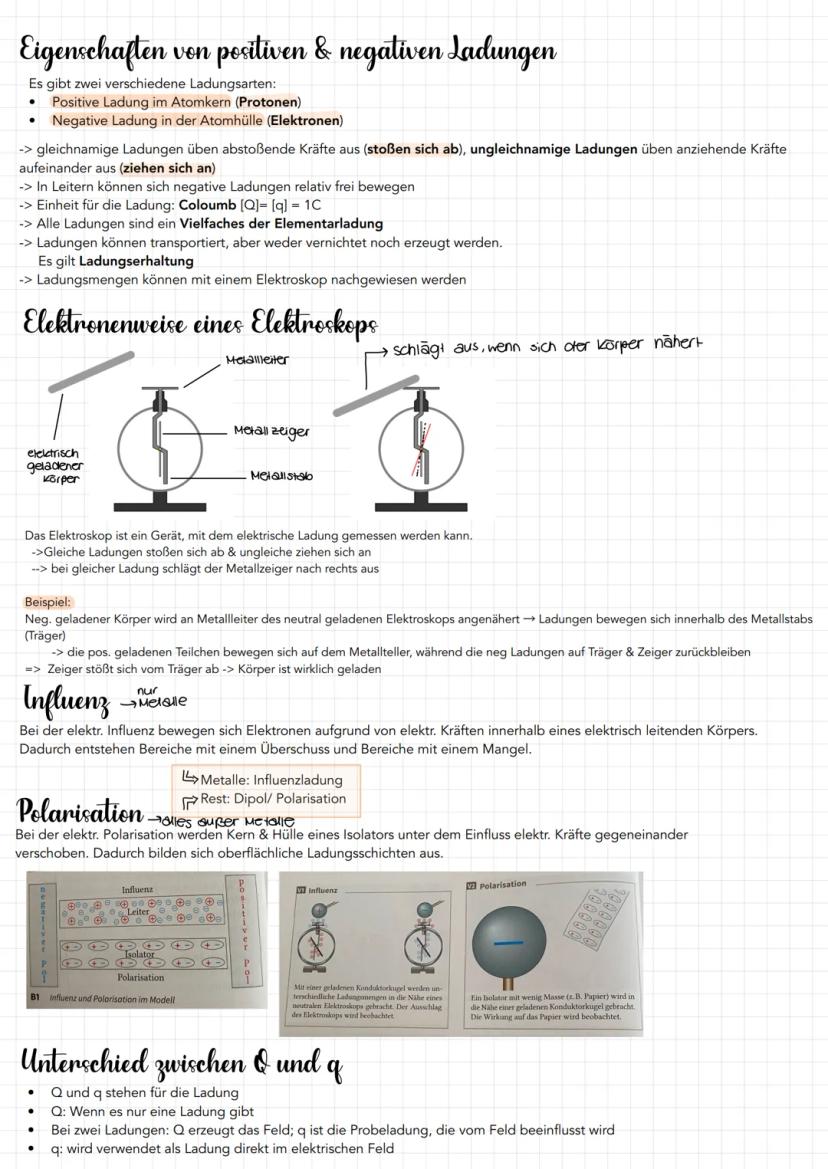 Eigenschaften von positiven & negativen Ladungen
Es gibt zwei verschiedene Ladungsarten:
• Positive Ladung im Atomkern (Protonen)
• Negative Ladung in der Atomhülle (Elektronen)
-> gleichnamige Ladungen üben abstoßende Kräfte aus (stoßen sich ab), ungleichnamige Ladungen üben anziehende Kräfte
aufeinander aus (ziehen sich an)
-> In Leitern können sich negative Ladungen relativ frei bewegen
-> Einheit für die Ladung: Coloumb [Q]= [q] = 1C
-> Alle Ladungen sind ein Vielfaches der Elementarladung
-> Ladungen können transportiert, aber weder vernichtet noch erzeugt werden.
Es gilt Ladungserhaltung
-> Ladungsmengen können mit einem Elektroskop nachgewiesen werden
Elektronenweise eines Elektroskops
→ schlägt aus, wenn sich der Körper nähert
Metallleiter
Metallzeiger
Metallstab
elektrisch
geladener
Körper
Das Elektroskop ist ein Gerät, mit dem elektrische Ladung gemessen werden kann.
->Gleiche Ladungen stoßen sich ab & ungleiche ziehen sich an
--> bei gleicher Ladung schlägt der Metallzeiger nach rechts aus
Beispiel:
Neg. geladener Körper wird an Metallleiter des neutral geladenen Elektroskops angenähert → Ladungen bewegen sich innerhalb des Metallstabs
(Träger)
-> die pos. geladenen Teilchen bewegen sich auf dem Metallteller, während die neg Ladungen auf Träger & Zeiger zurückbleiben
=> Zeiger stößt sich vom Träger ab -> Körper ist wirklich geladen
Influenz → nur Metalle
Bei der elektr. Influenz bewegen sich Elektronen aufgrund von elektr. Kräften innerhalb eines elektrisch leitenden Körpers.
Dadurch entstehen Bereiche mit einem Überschuss und Bereiche mit einem Mangel.
Metalle: Influenzladung
Rest: Dipol/ Polarisation
Polarisation → alles außer Metalle
Bei der elektr. Polarisation werden Kern & Hülle eines Isolators unter dem Einfluss elektr. Kräfte gegeneinander
verschoben. Dadurch bilden sich oberflächliche Ladungsschichten aus.
negativer Pol
Influenz
Leiter
Isolator
Polarisation
positiver Pol
B1 Influenz und Polarisation im Modell
V1 Influenz
Mit einer geladenen Konduktorkugel werden un-
terschiedliche Ladungsmengen in die Nähe eines
neutralen Elektroskops gebracht. Der Ausschlag
des Elektroskops wird beobachtet.
V2 Polarisation
Ein Isolator mit wenig Masse (z. B. Papier) wird in
die Nähe einer geladenen Konduktorkugel gebracht.
Die Wirkung auf das Papier wird beobachtet.
Unterschied zwischen Q und q
• Q und q stehen für die Ladung
• Q: Wenn es nur eine Ladung gibt
• Bei zwei Ladungen: Q erzeugt das Feld; q ist die Probeladung, die vom Feld beeinflusst wird
• q: wird verwendet als Ladung direkt im elektrischen Feld